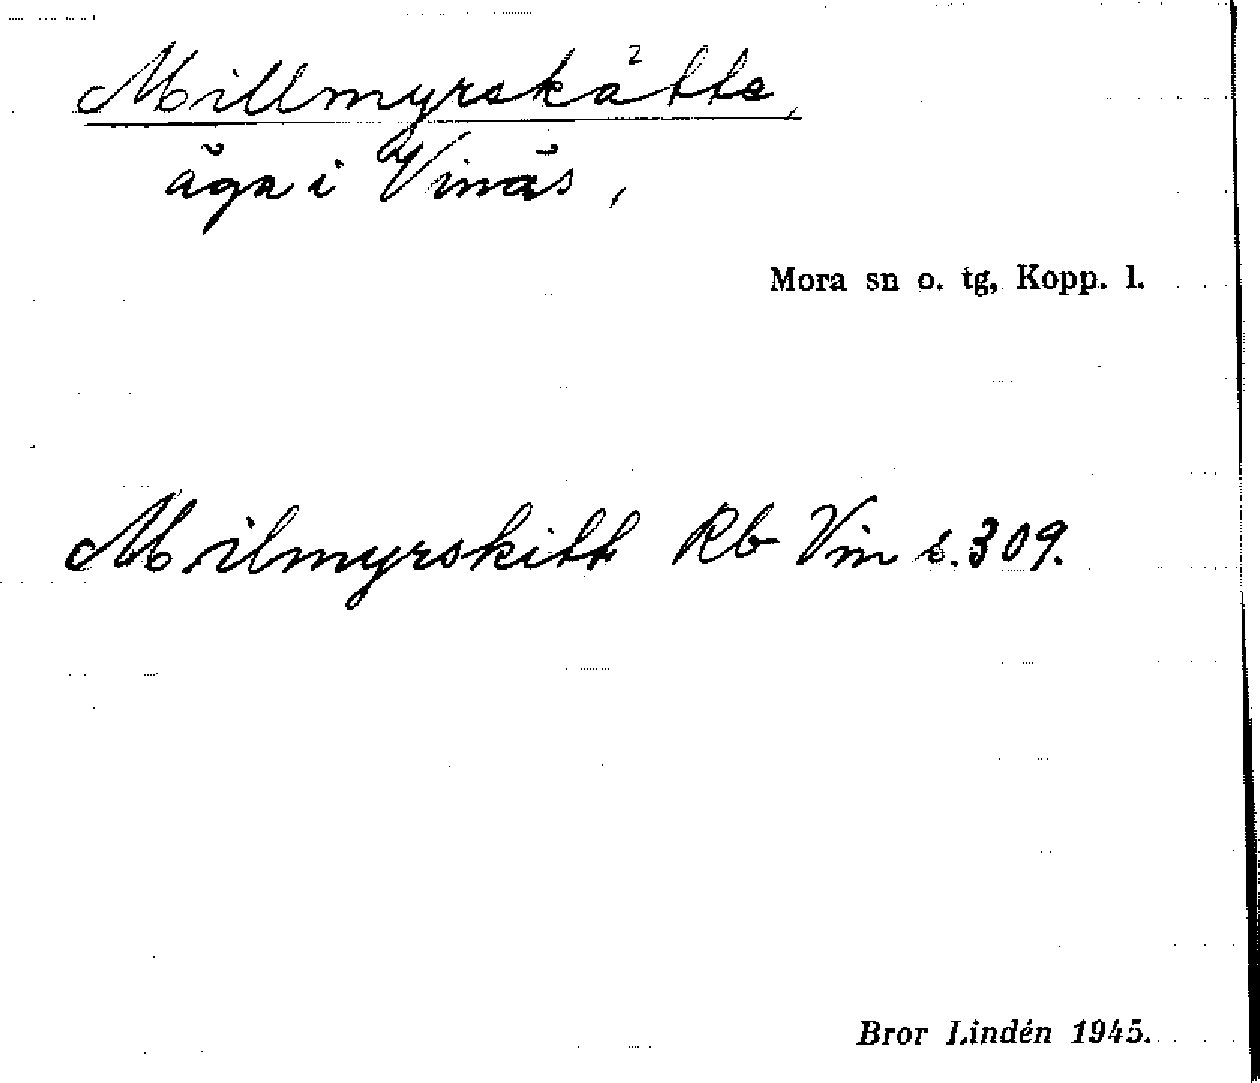 Millmyrskätte,
äga i Vinäs,
Mora sn o. tg, Kopp. l.
Milmyrskitt Rb Vin s. 309.
Bror Lindén 1945.